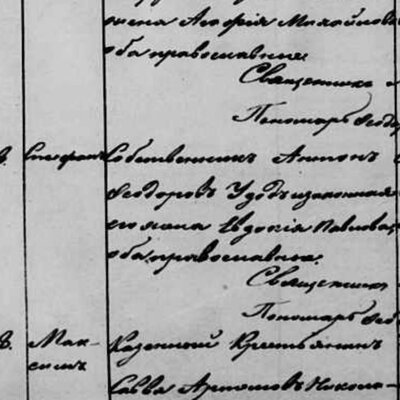 жена Агафія Михайлов
оба православные.
Священникъ
Пономарь Ѳеодор
Стефанъ Собственникъ Антонъ
Ѳеодоровъ Удодъ и законная
его жена Евдокія Павлова,
оба православные.
Священникъ
Пономарь Ѳеод
Мак- Казенный Крестьянинъ
симъ
Савва Артемовъ Никола-